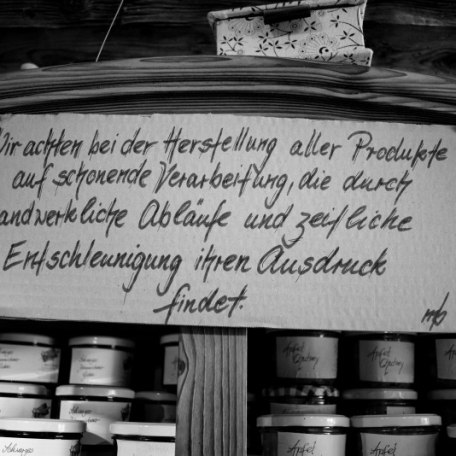 Wir achten bei der Herstellung aller Produkte
auf schonende Verarbeitung, die durch
andwerkliche Abläufe und zeitliche
Entschleunigung ihren Ausdruck
findet.
Apfel
Apfel
Apfel
Apfel
Schwarze